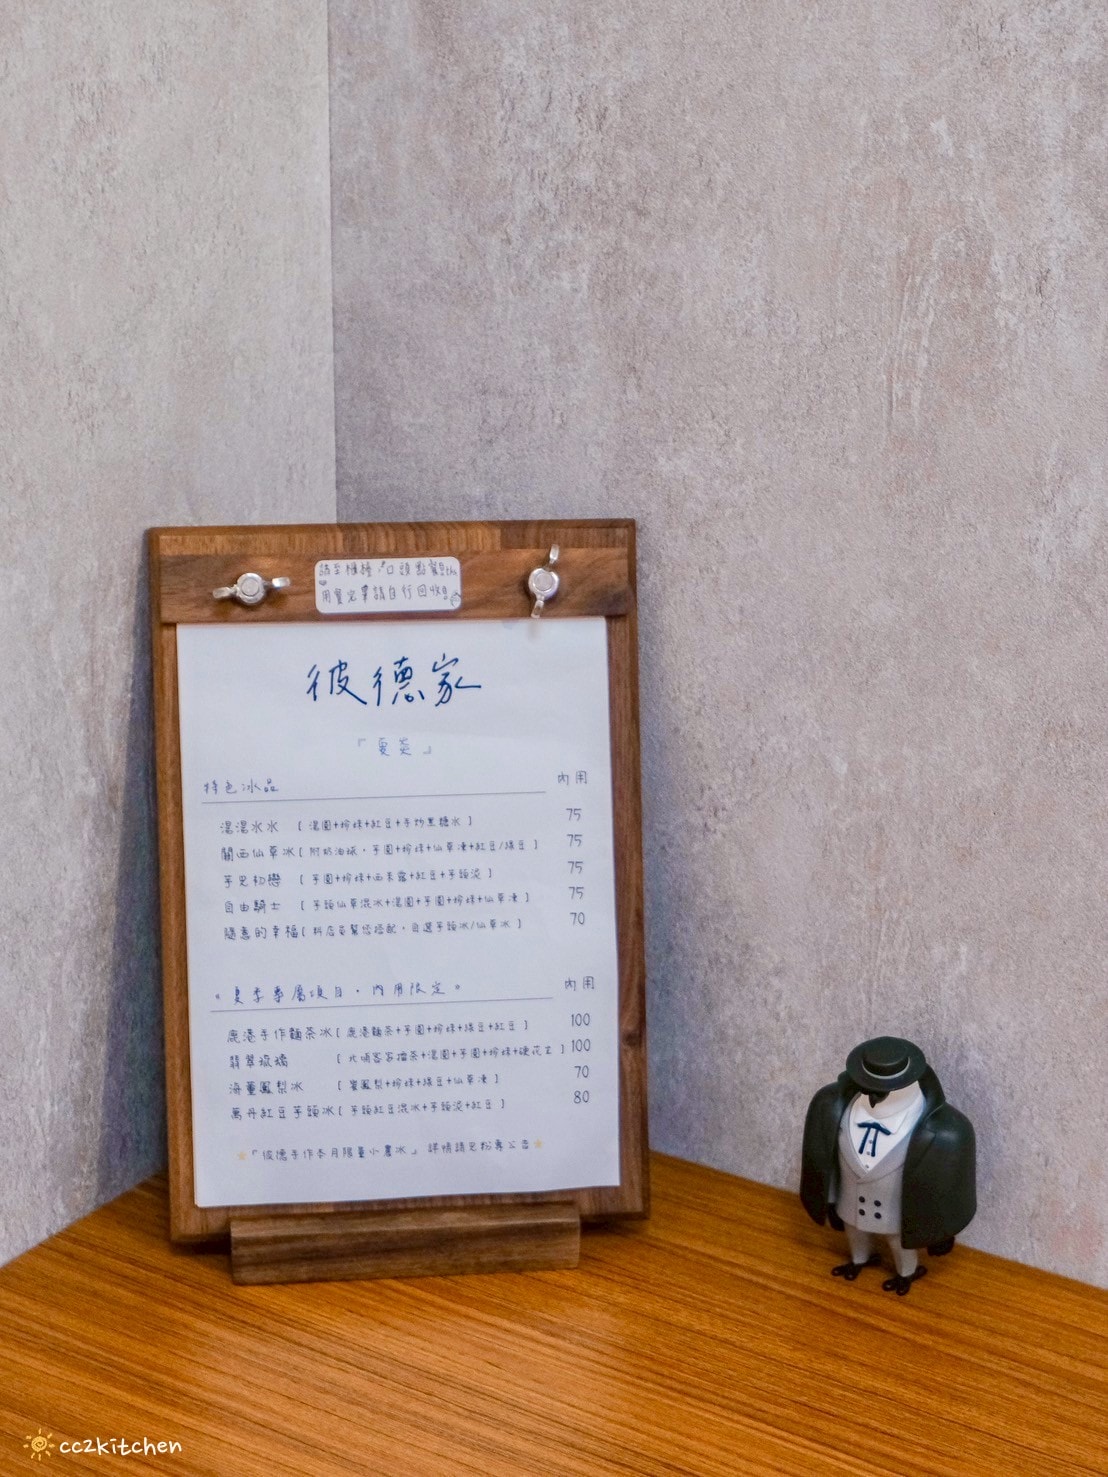 請至櫃檯，口頭點餐
用餐完畢請自行回收
彼德家
『夏炎』
特色冰品 內用
湯湯水水 [ 湯圓+珍珠+紅豆+手炒黑糖水 ] 75
關西仙草冰 [ 附奶油球、芋圓+珍珠+仙草凍+紅豆/綠豆 ] 75
芋見初戀 [ 芋圓+珍珠+西米露+紅豆+芋頭泥 ] 75
自由騎士 [ 芋頭仙草混冰+湯圓+芋圓+珍珠+仙草凍 ] 75
隨意的幸福 [ 料店員幫您搭配，自選芋頭冰/仙草冰 ] 70
。夏季專屬項目，內用限定。 內用
鹿港手作麵茶冰 [ 鹿港麵茶+芋圓+珍珠+綠豆+紅豆 ] 100
翡翠琉璃 [ 北埔客家擂茶+湯圓+芋圓+珍珠+硬花生 ] 100
海董鳳梨冰 [ 蜜鳳梨+珍珠+綠豆+仙草凍 ] 70
萬丹紅豆芋頭冰 [ 芋頭紅豆混冰+芋頭泥+紅豆 ] 80
『彼德手作本月限量小農冰』詳情請見粉專公告
cc2kitchen